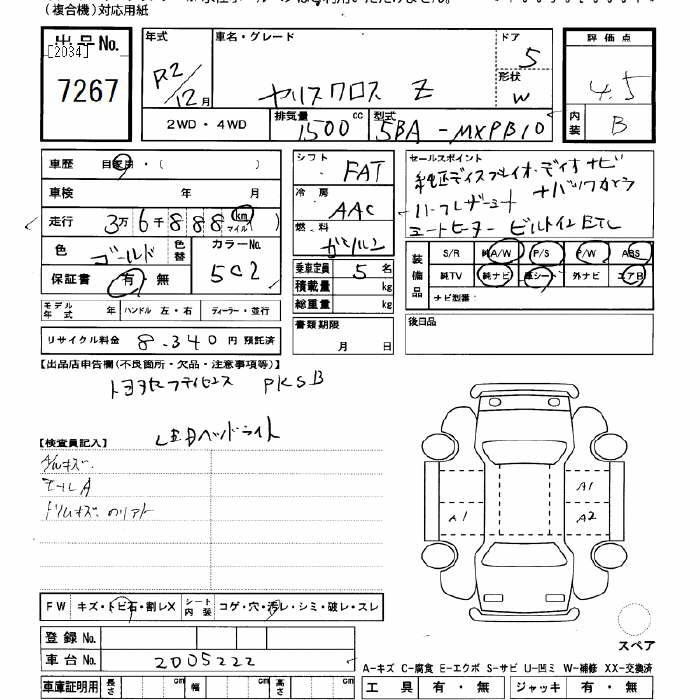 (複合機)対応用紙
出品No.
[2034]
7267
年式
R2/12月
車名・グレード
ヤリスクロス Z
ドア
5
形状
W
評価点
4.5
内装
B
2WD・4WD
排気量
1500cc
型式
5BA-MXPB10
車歴 自家用・( )
車検 年 月
走行 3万6千888 km マイル
色 ゴールド
色替
カラーNo.
5C2
保証書 有・無
シフト
FAT
冷房
AAC
燃料
ガソリン
乗車定員 5名
積載量 kg
総重量 kg
セールスポイント
純正ディスプレイオーディオナビ
ハーフレザーシート ナバックカメラ
シートヒーター ビルトインETC
装備品
S/R 純A/W P/S P/W ABS
純TV 純ナビ 革シート 外ナビ エアB
ナビ型番:
モデル年式 年 ハンドル 左・右 ディーラー・並行
リサイクル料金 8,340円 預託済
書類期限
月 日
後日品
【出品店申告欄(不良箇所・欠品・注意事項等)】
トヨタセーフティセンス PKSB
LEDヘッドライト
【検査員記入】
モールA
FW キズ・トビ石・割レX シート内装 コゲ・穴・汚レ・シミ・破レ・スレ
A1
A1
A2
スペア
登録No.
車台No. 2005222
A-キズ C-腐食 E-エクボ S-サビ U-凹ミ W-補修 XX-交換済
車庫証明用 長さ cm 幅 cm 高さ cm
工具 有・無 ジャッキ 有・無